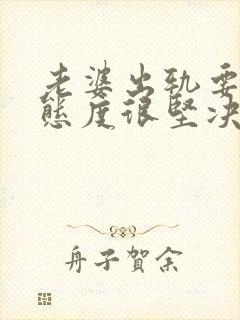 老婆出轨要
态度很坚决
舟子贺余